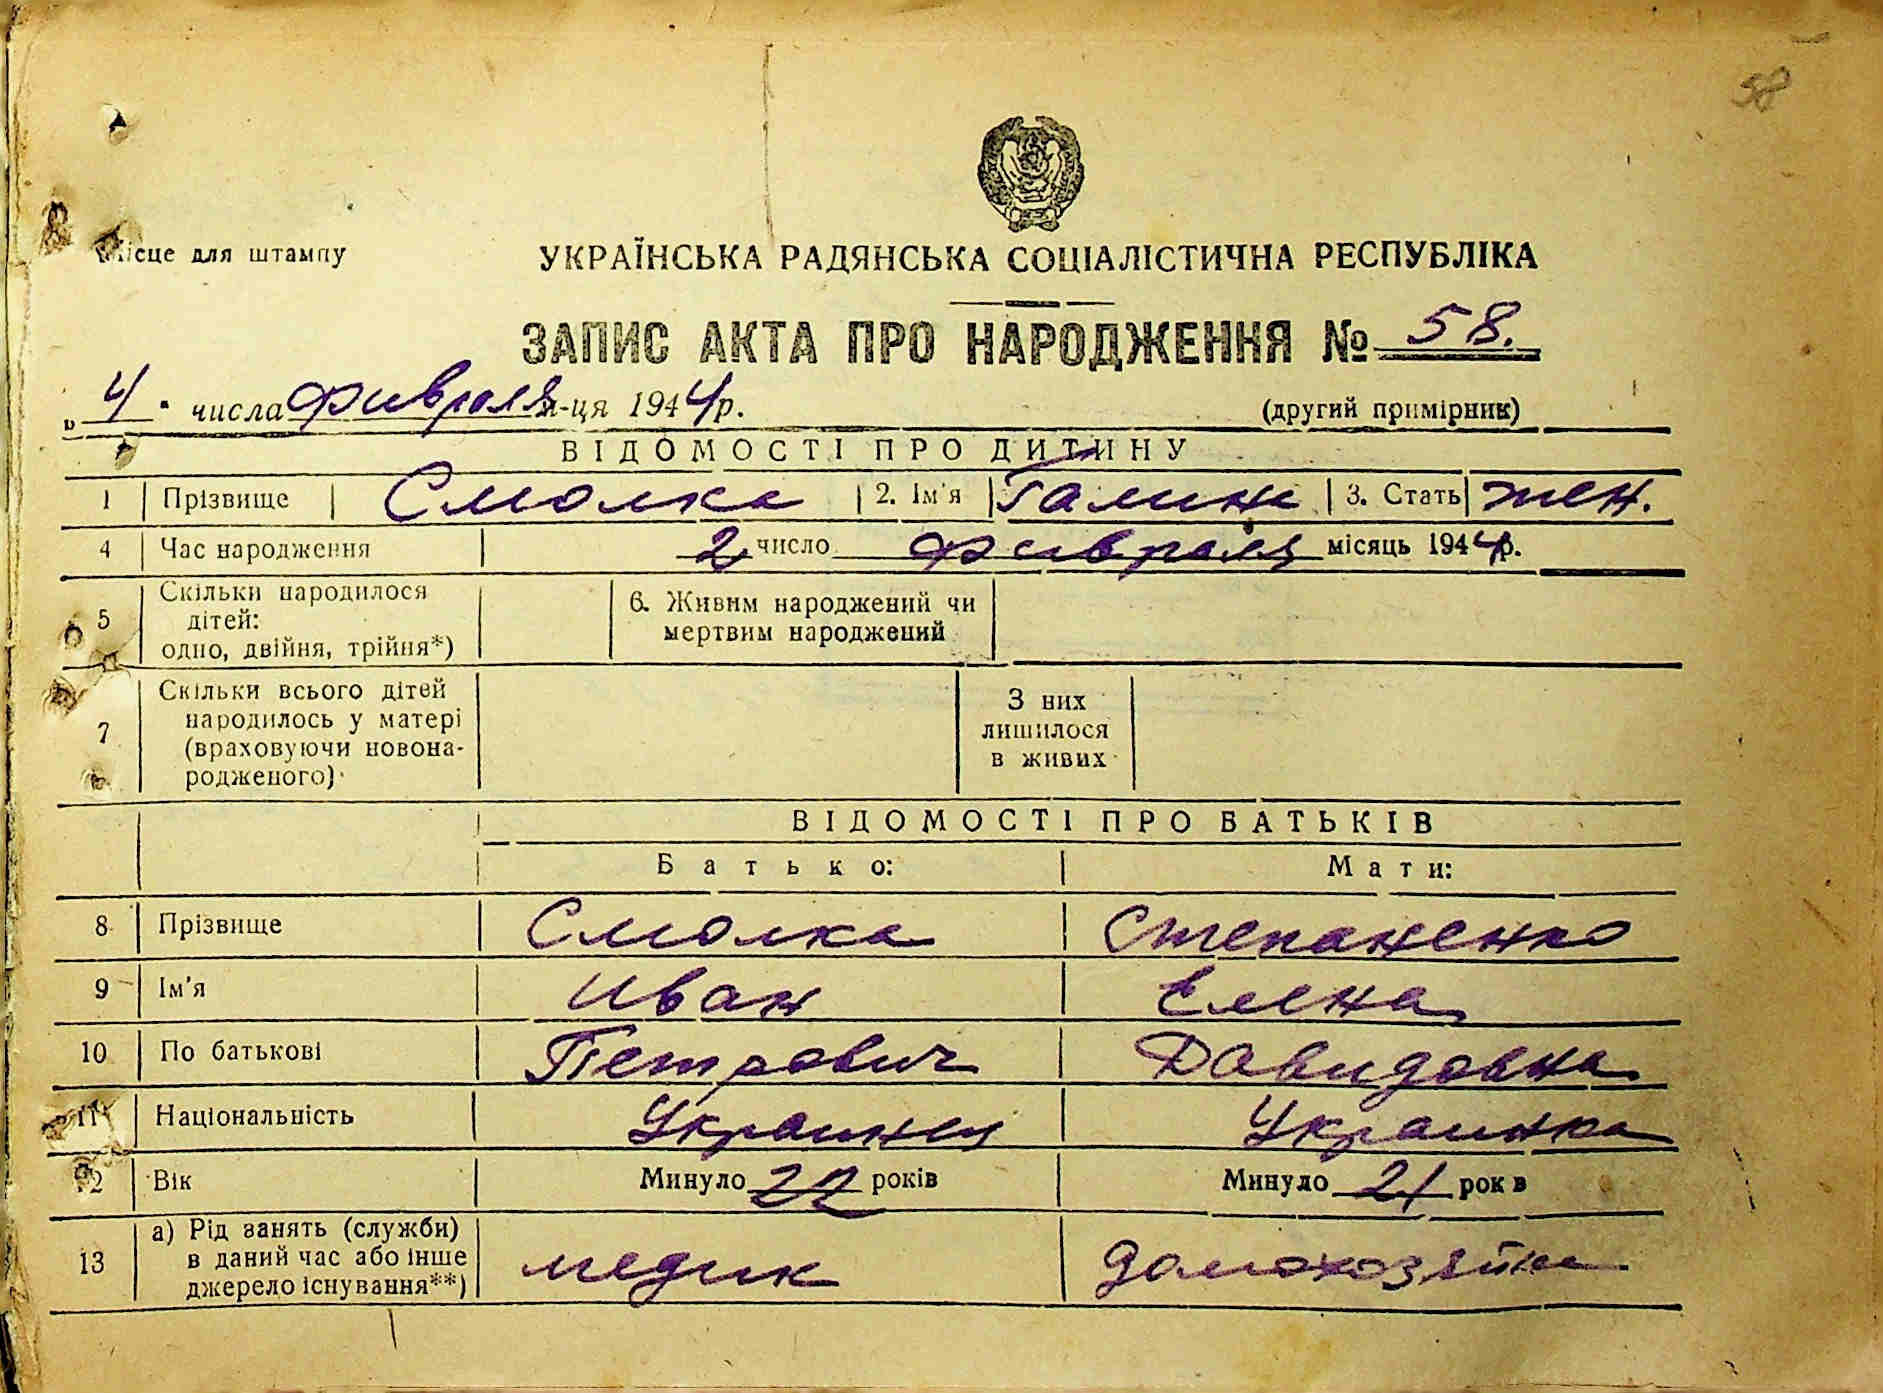 58
Місце для штампу
УКРАЇНСЬКА РАДЯНСЬКА СОЦІАЛІСТИЧНА РЕСПУБЛІКА
ЗАПИС АКТА ПРО НАРОДЖЕННЯ № 58.
„4" числа Фивраля м-ця 1944 р.
(другий примірник)
ВІДОМОСТІ ПРО ДИТИНУ
1 Прізвище Смолка 2. Ім'я Галина 3. Стать жен.
4 Час народження 2 число Фивраля місяць 1944 р.
5 Скільки народилося дітей: одно, двійня, трійня*) 6. Живим народжений чи мертвим народжений
7 Скільки всього дітей народилось у матері (враховуючи новонародженого) З них лишилося в живих
ВІДОМОСТІ ПРО БАТЬКІВ
Батько: Мати:
8 Прізвище Смолка Степаненко
9 Ім'я Иван Елена
10 По батькові Петрович Давидовна
11 Національність Украинец Украинка
12 Вік Минуло 22 років Минуло 21 рок в
13 а) Рід занять (служби) в даний час або інше джерело існування**) медик домохозяйка